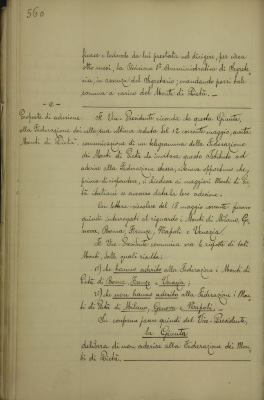 560
finace e lodevole da lui prestata nel dirigere, per circa
otto mesi, la Divisione 1ª Amministrativa di Segrete-
ria, in assenza del Segretario; mandando porsi tale
somma a carico del Monte di Pietà. —
Proposta di adesione
alla Federazione dei
Monti di Pietà.
Il Vice-Presidente ricorda che questa Giunta,
nella sua ultima seduta del 12 corrente maggio, avuta
comunicazione di un telegramma della Federazione
dei Monti di Pietà che invitava questo Istituto ad
aderire alla Federazione stessa, riteneva opportuno che,
prima di rispondere, si chiedesse ai maggiori Monti di Pie-
tà italiani se avessero data la loro adesione. —
Con lettera-circolare del 13 maggio corrente furono
quindi interrogati al riguardo i Monti di Milano, Ge-
nova, Roma, Firenze, Napoli e Venezia.
Il Vice-Presidente comunica ora le risposte di tali
Monti, dalle quali risulta:
1°) che hanno aderito alla Federazione i Monti di
Pietà di Roma, Firenze e Venezia;
2°) che non hanno aderito alla Federazione i Mon-
ti di Pietà di Milano, Genova e Napoli. —
Su conforme parere quindi del Vice-Presidente,
la Giunta
delibera di non aderire alla Federazione dei Mon-
ti di Pietà.